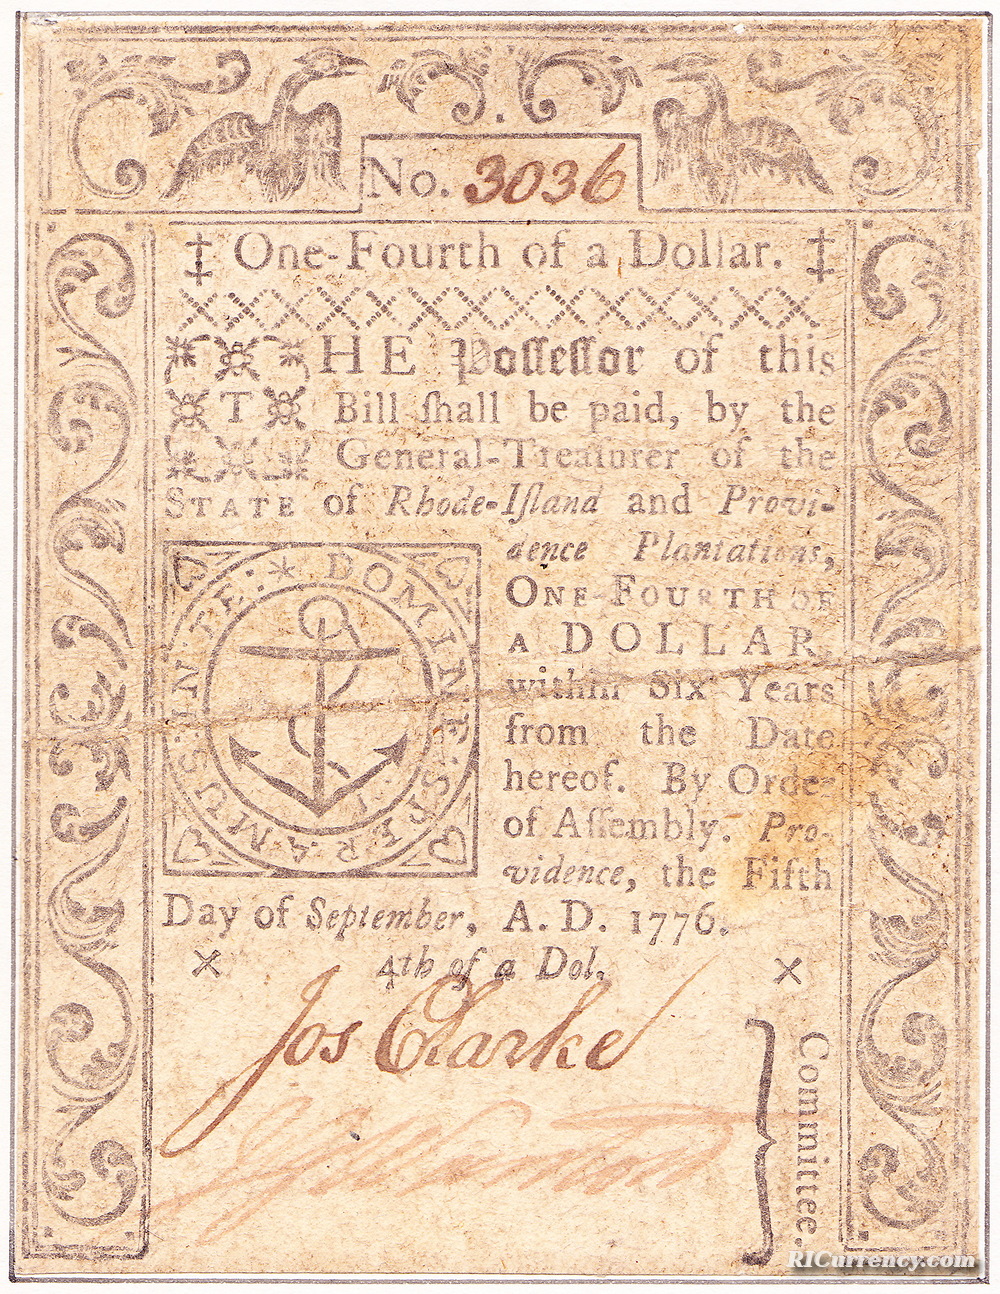 No. 3036
‡ One-Fourth of a Dollar. ‡
THE Poſſeſſor of this
Bill ſhall be paid, by the
General-Treaſurer of the
STATE of Rhode-Iſland and Provi-
dence Plantations,
ONE-FOURTH OF
A DOLLAR,
within Six Years
from the Date
hereof. By Order
of Aſſembly. Pro-
vidence, the Fifth
Day of September, A. D. 1776.
IN TE: * DOMINE: SPERAMUS
4th of a Dol.
Jos Clarke
Committee.
RICurrency.com